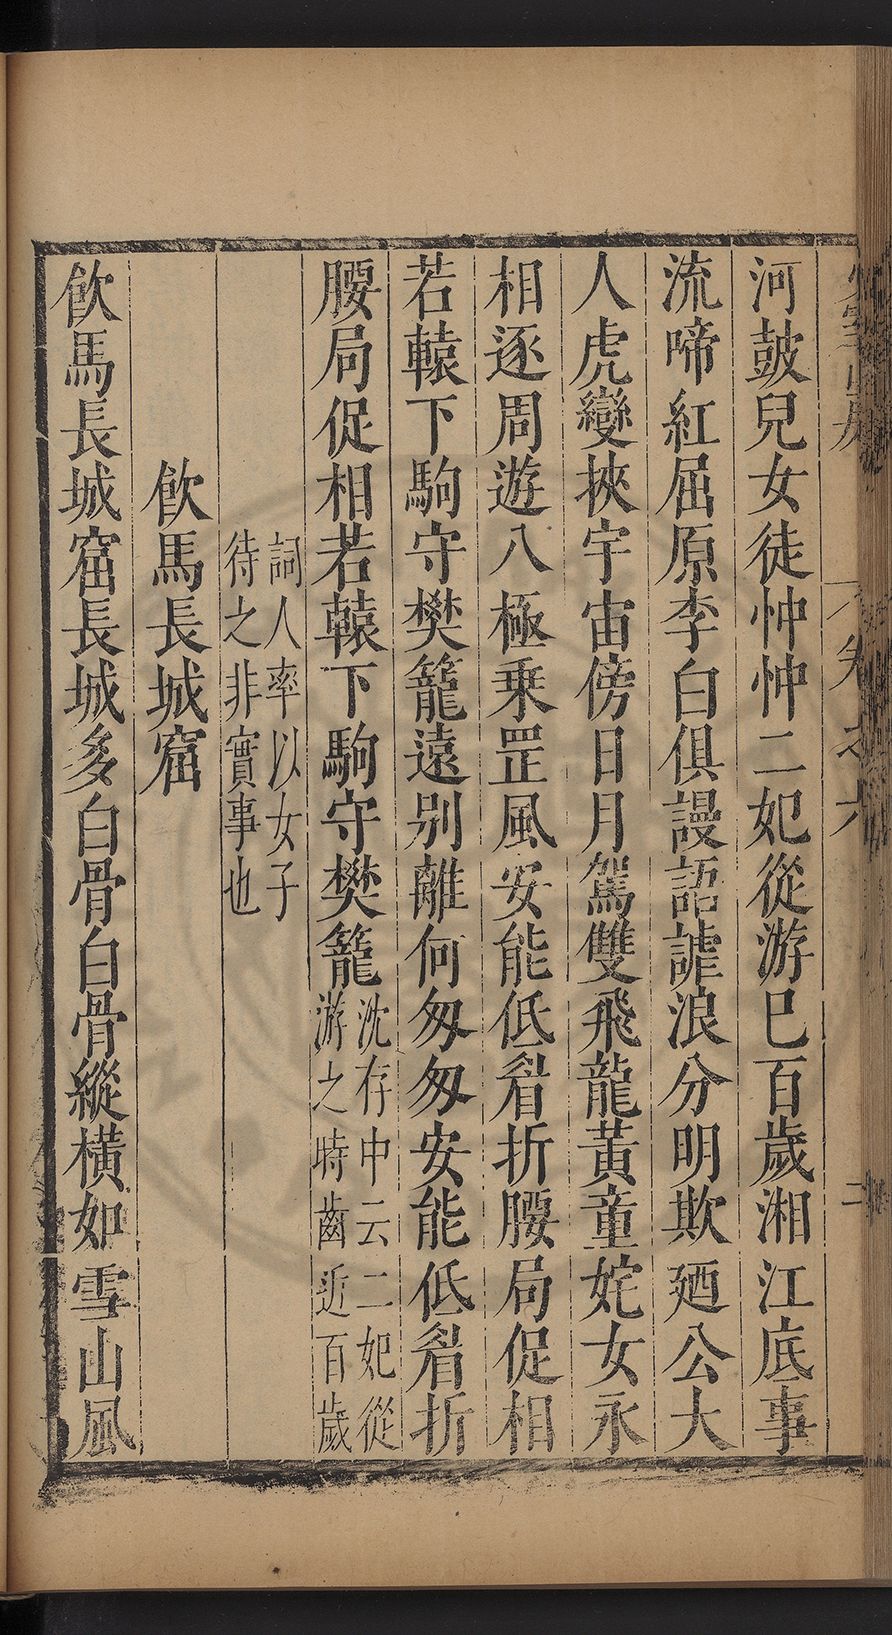 河鼓兒女徒忡忡二妃從游巳百歲湘江底事
流啼紅屈原李白俱謾語謔浪分明欺廼公大
人虎變挾宇宙傍日月駕雙飛龍黃童姹女永
相逐周遊八極乗罡風安能低眉折腰局促相
若轅下駒守樊籠遠别離何匆匆安能低眉折
腰局促相若轅下駒守樊籠
沈存中云二妃從
游之時齒近百歲
詞人率以女子
待之非實事也
飲馬長城窟
飲馬長城窟長城多白骨白骨縱橫如雪山風